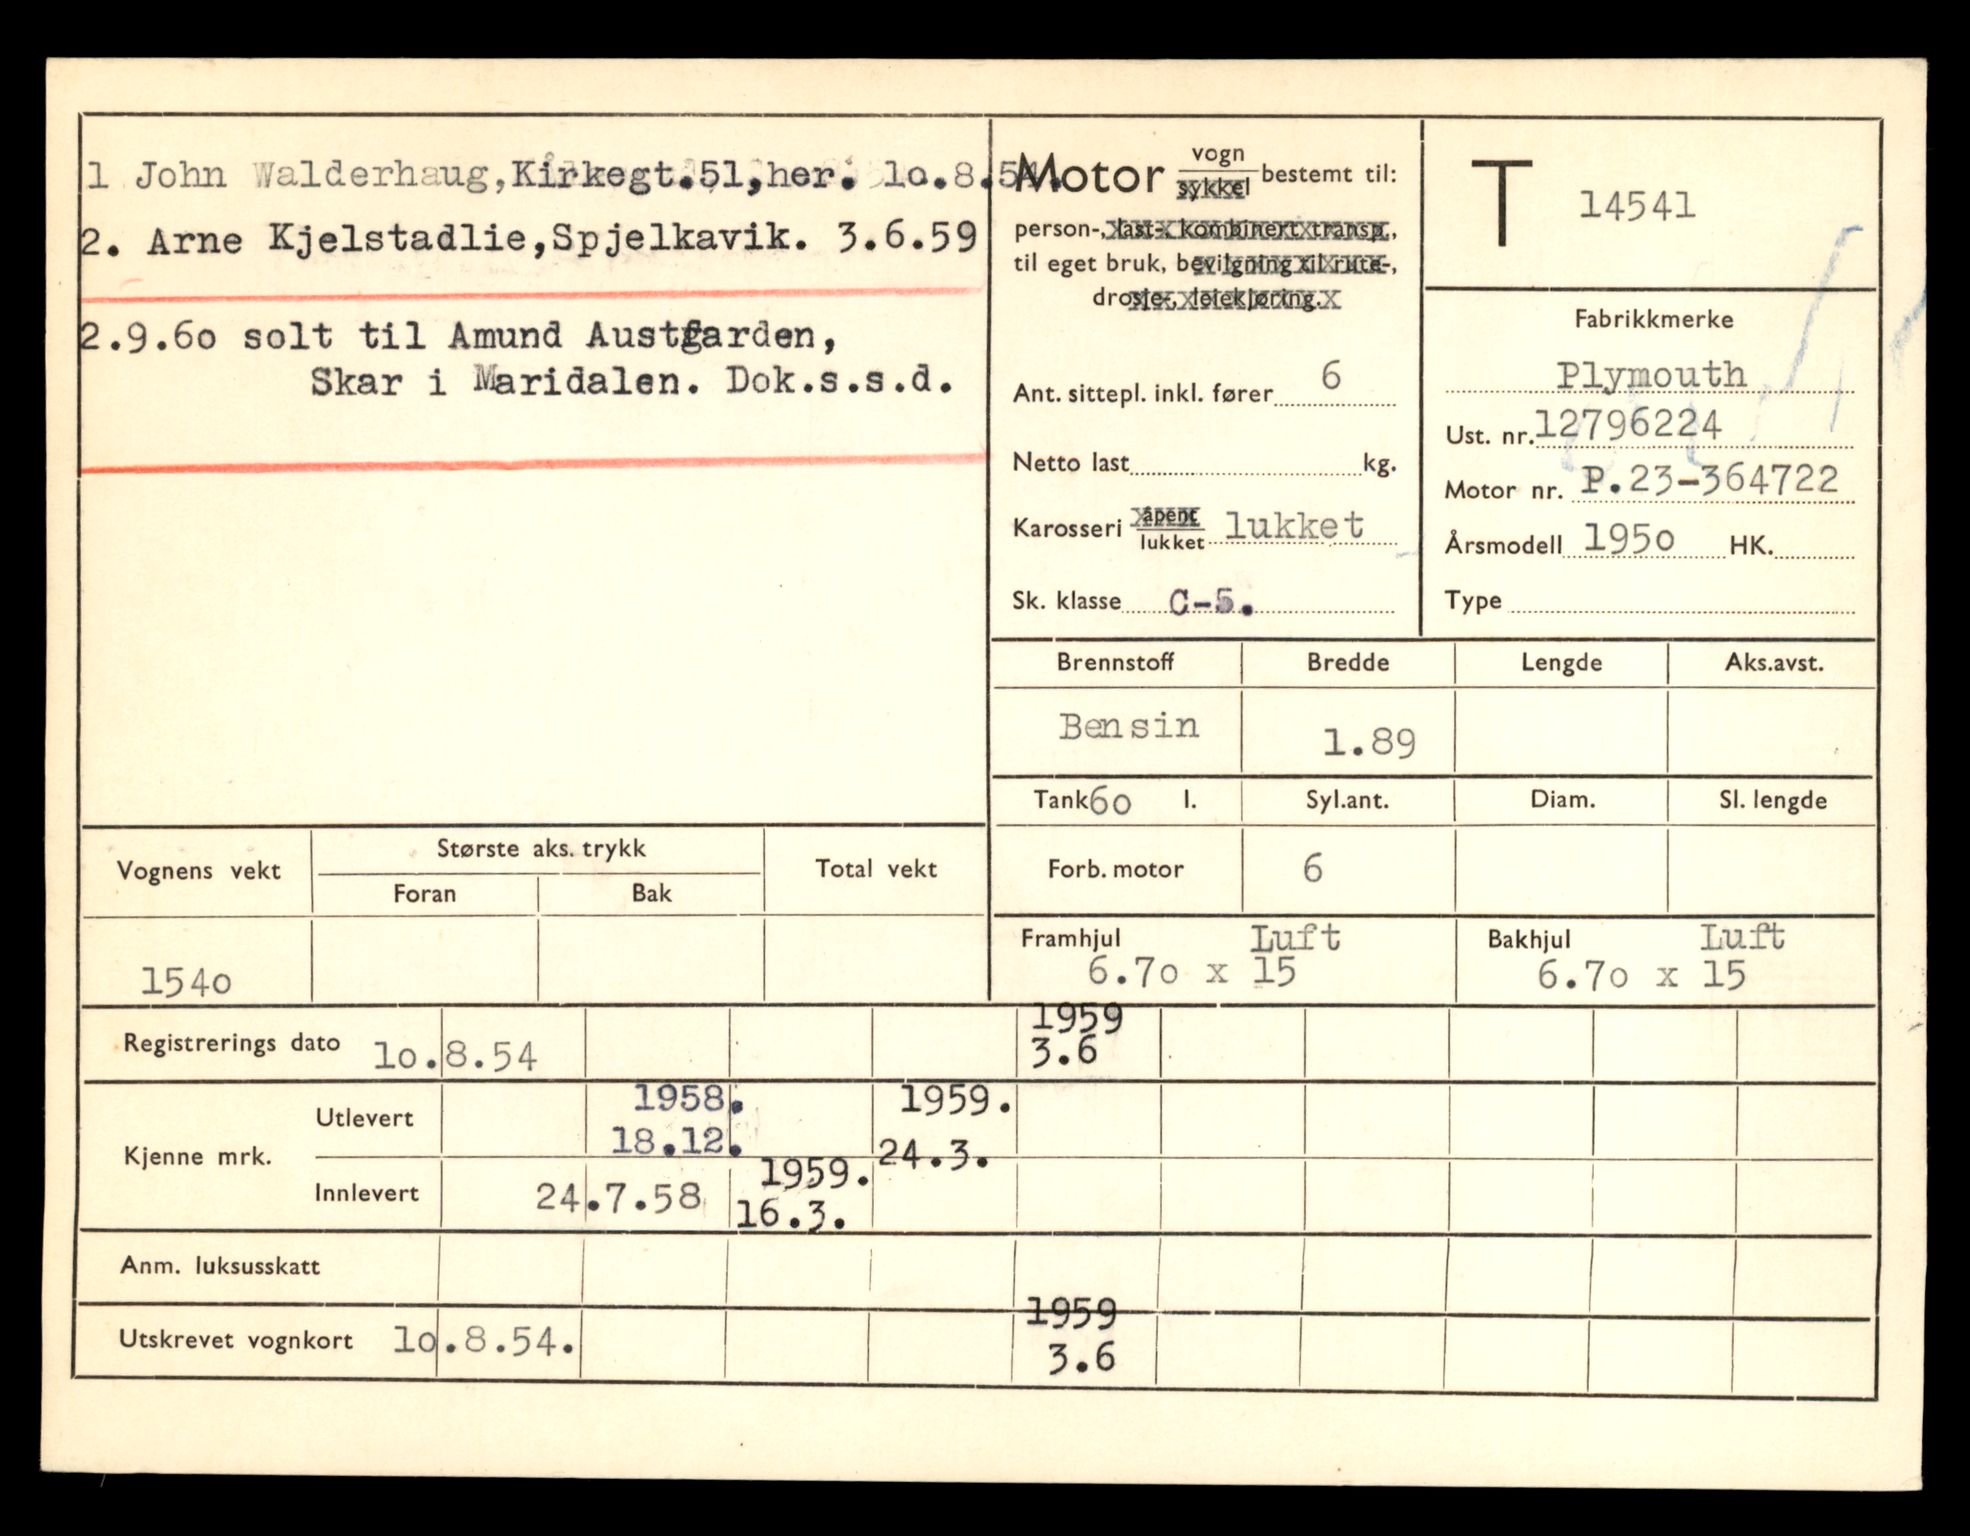 1 John Walderhaug,Kirkegt.51,her. lo.8.54.
2. Arne Kjelstadlie,Spjelkavik. 3.6.59
2.9.6o solt til Amund Austgarden,
Skar i Maridalen. Dok.s.s.d.
Motor vogn
sykkel
bestemt til:
person-, last-, kombinert transp.,
til eget bruk, bevilgning til rute-,
drosje-, leiekjøring.
Ant. sittepl. inkl. fører 6
Netto last kg.
Karosseri åpent
lukket lukket
Sk. klasse C-5.
T 14541
Fabrikkmerke
Plymouth
Ust. nr. 12796224
Motor nr. P.23-364722
Årsmodell 195o HK.
Type
Brennstoff Bredde Lengde Aks.avst.
Bensin 1.89
Tank 6o l. Syl.ant. Diam. Sl. lengde
Forb. motor 6
Framhjul Luft
6.7o x 15
Bakhjul Luft
6.7o x 15
Vognens vekt Største aks. trykk Total vekt
Foran Bak
154o
Registrerings dato lo.8.54 1959
3.6
Kjenne mrk.
Utlevert 1958. 1959.
18.12. 24.3.
Innlevert 24.7.58 1959.
16.3.
Anm. luksusskatt
Utskrevet vognkort lo.8.54. 1959
3.6